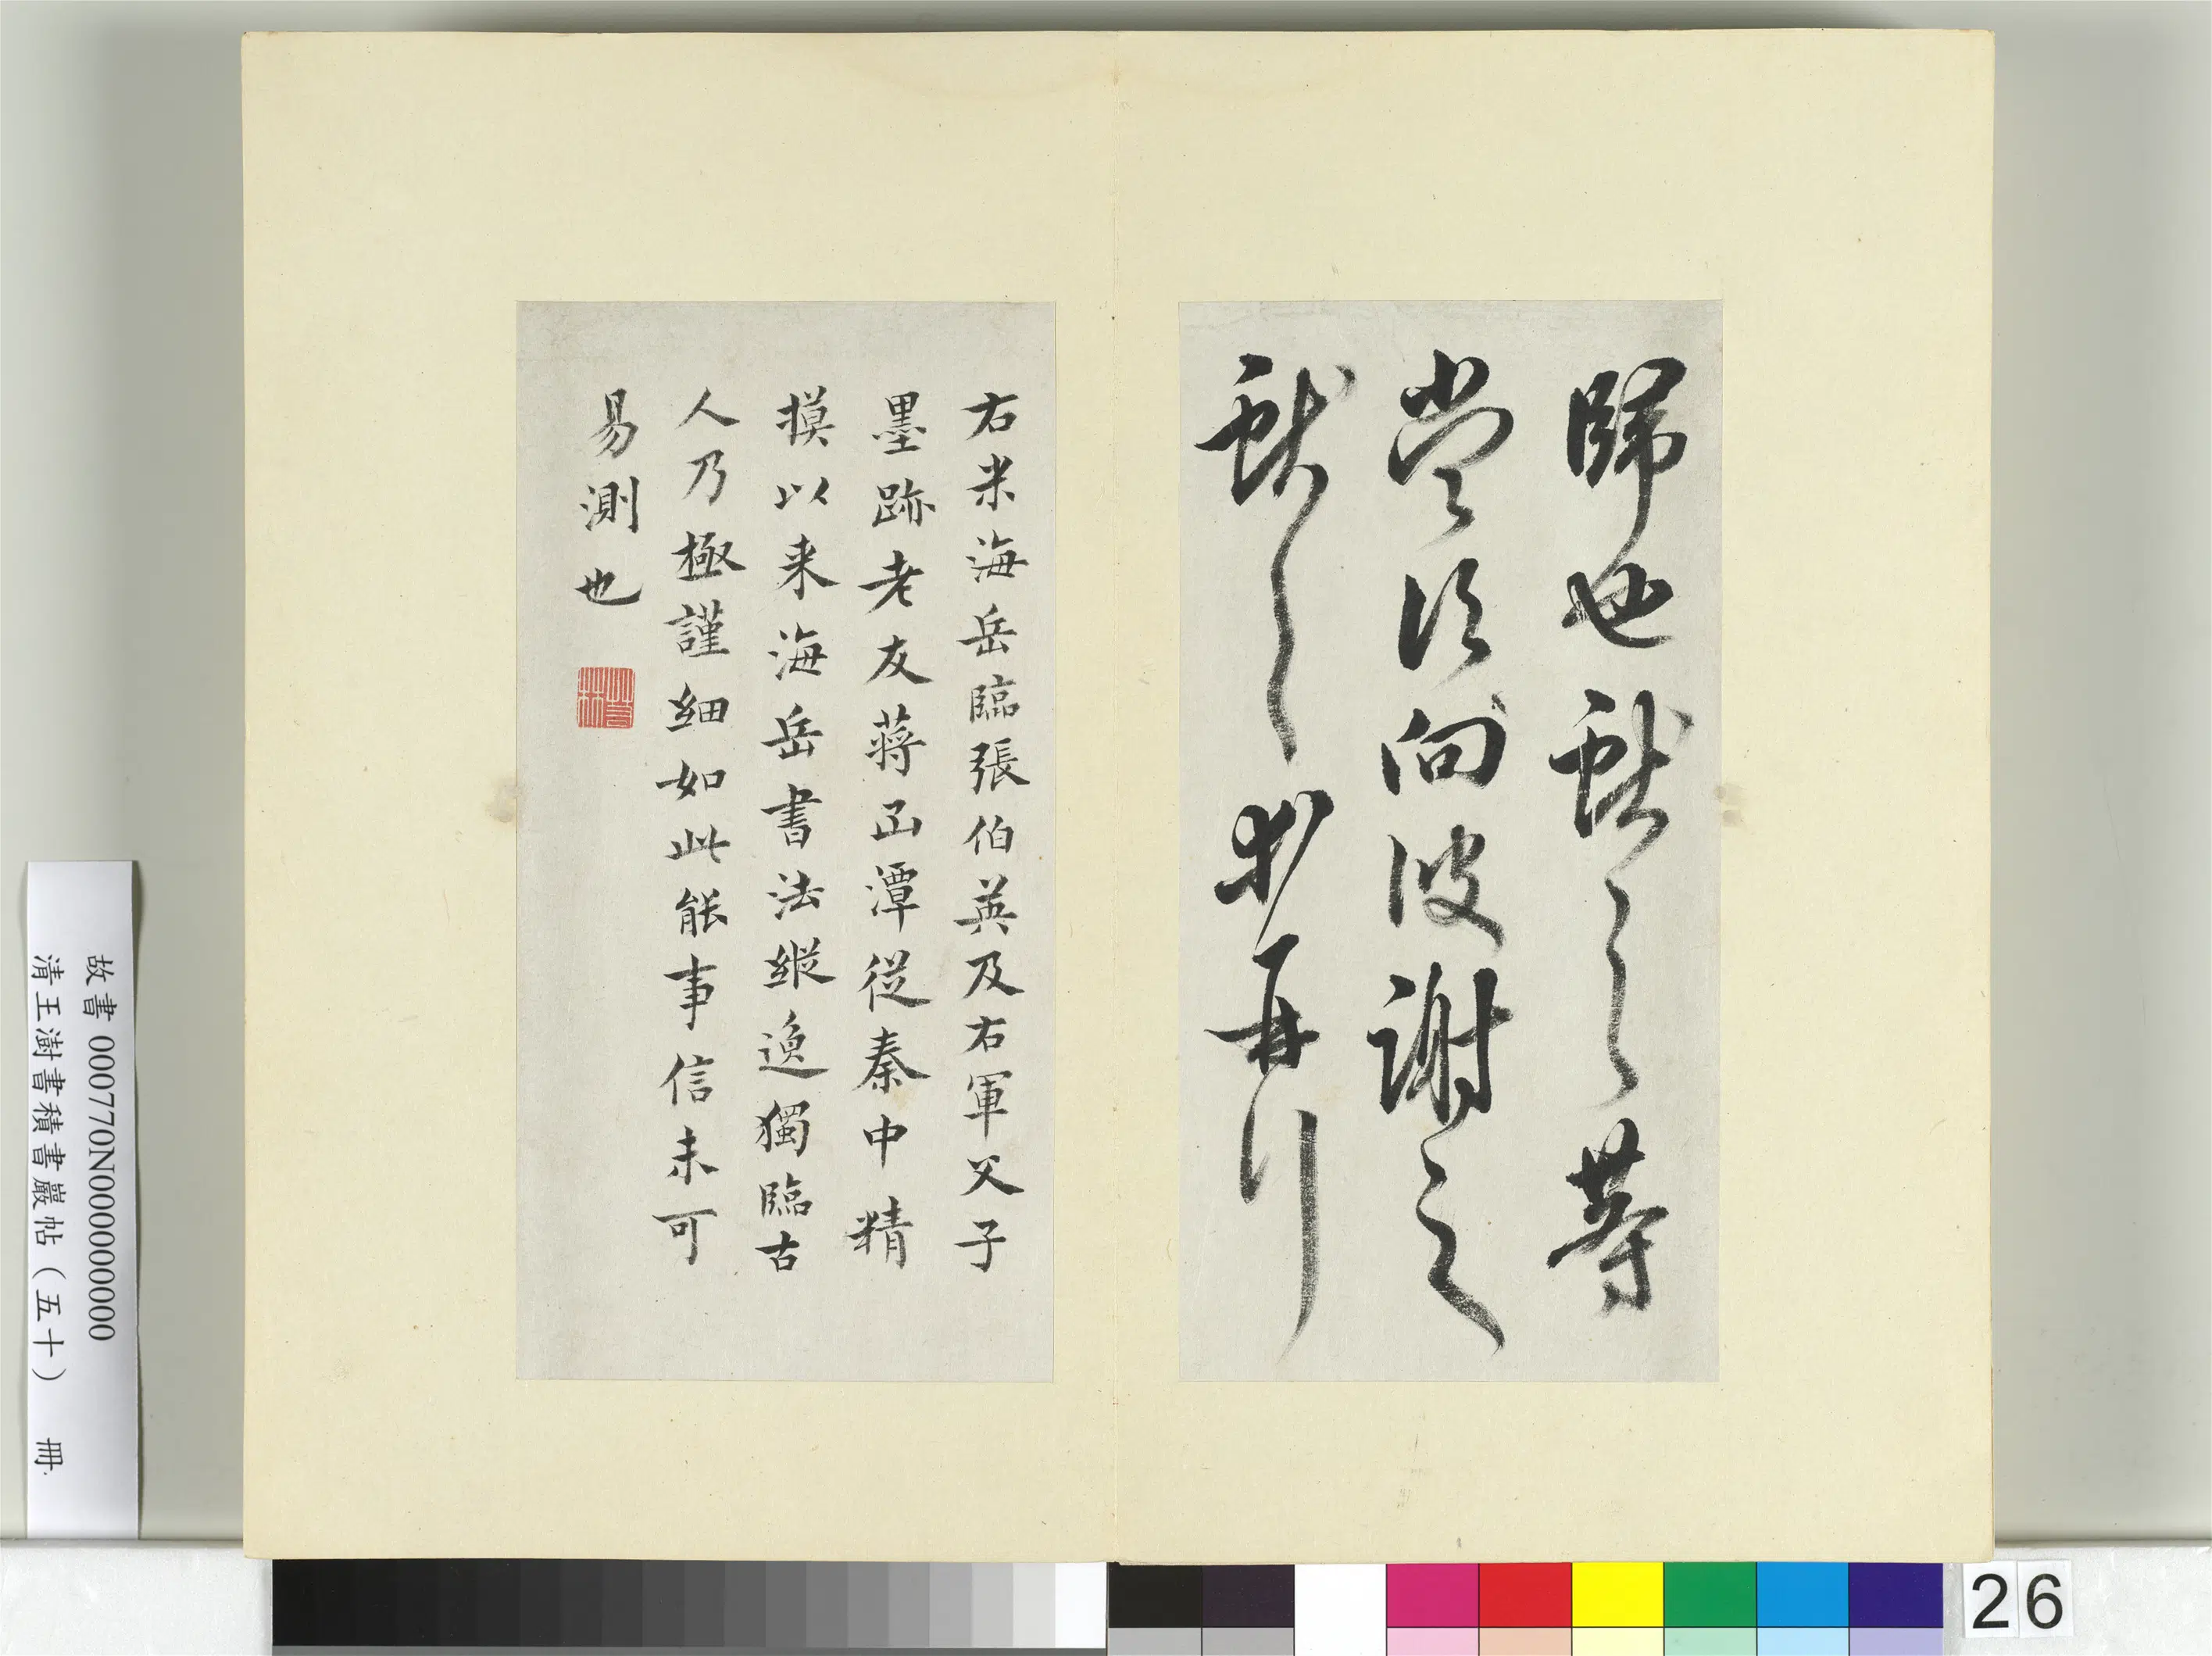 歸也獻之等
當須向彼謝之
獻之
再行
右米海岳臨張伯英及右軍父子
墨跡老友蔣函潭從秦中精
摸以来海岳書法縱逸獨臨古
人乃極謹細如此能事信未可
易測也
故書 000770N000000000
清王澍書積書巖帖（五十） 冊
26